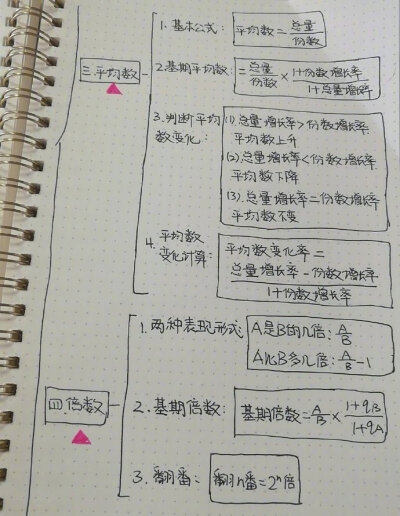 三.平均数
1.基本公式: 平均数=总量/份数
2.基期平均数: =总量/份数×1+份数增长率/1+总量增长率
3.判断平均数变化:
(1).总量增长率>份数增长率
平均数上升
(2).总量增长率<份数增长率
平均数下降
(3).总量增长率=份数增长率
平均数不变
4.平均数变化计算:
平均数变化率=
总量增长率-份数增长率/1+份数增长率
四倍数
1.两种表现形式:
A是B的几倍:A/B
A比B多几倍:A/B-1
2.基期倍数: 基期倍数=A/B×1+qB/1+qA
3.翻番: 翻n番=2ⁿ倍